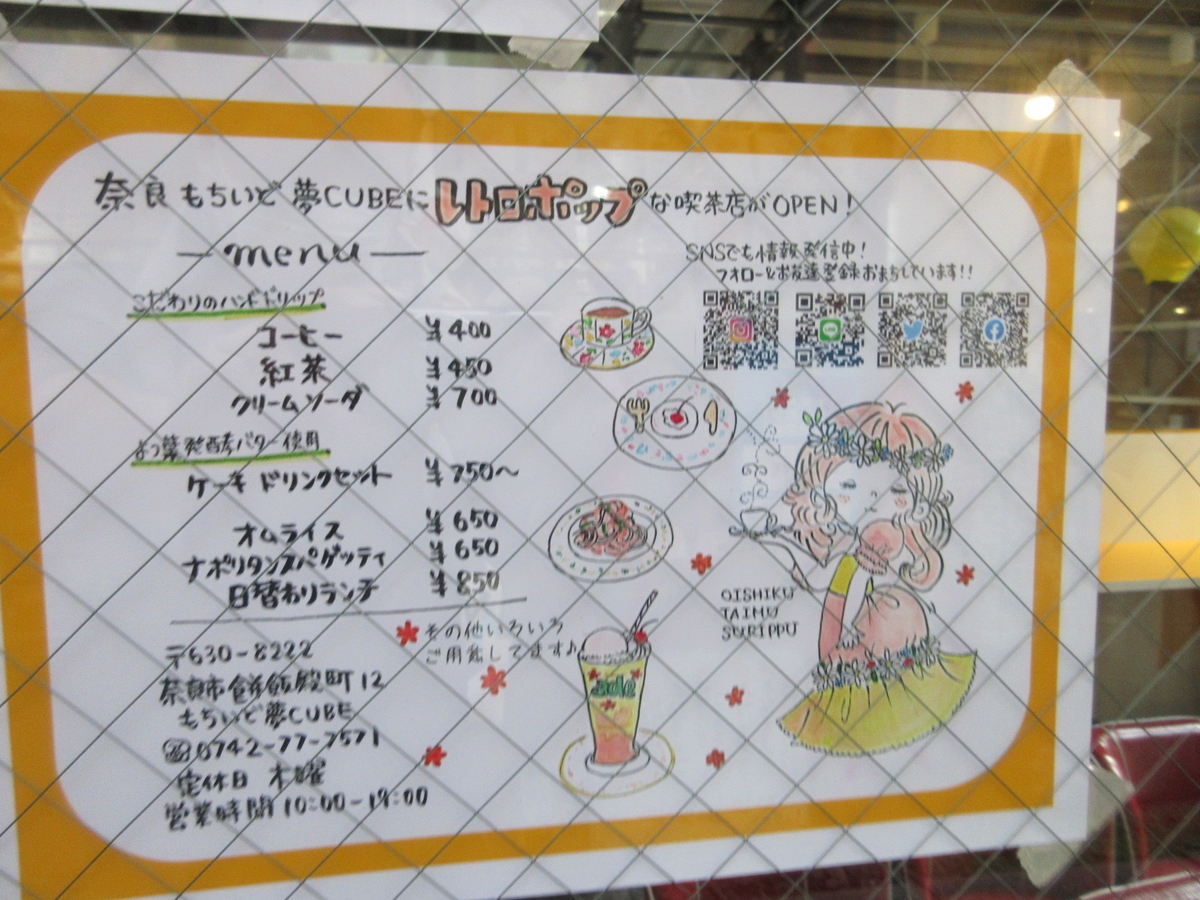 奈良もちいど夢CUBEにレトロポップな喫茶店がOPEN!
menu
こだわりのハンドドリップ
コーヒー ¥400
紅茶 ¥450
クリームソーダ ¥700
よつ葉発酵バター使用
ケーキ ドリンクセット ¥750〜
オムライス ¥650
ナポリタンスパゲッティ ¥650
日替わりランチ ¥850
その他いろいろ
ご用意してます♪
〒630-8222
奈良市餅飯殿町12
もちいど夢CUBE
☎0742-77-7571
定休日 木曜
営業時間 10:00-19:00
SNSでも情報発信中!
フォロー&お友達登録おまちしています!!
OISHIKU
TAIMU
SURIPPU